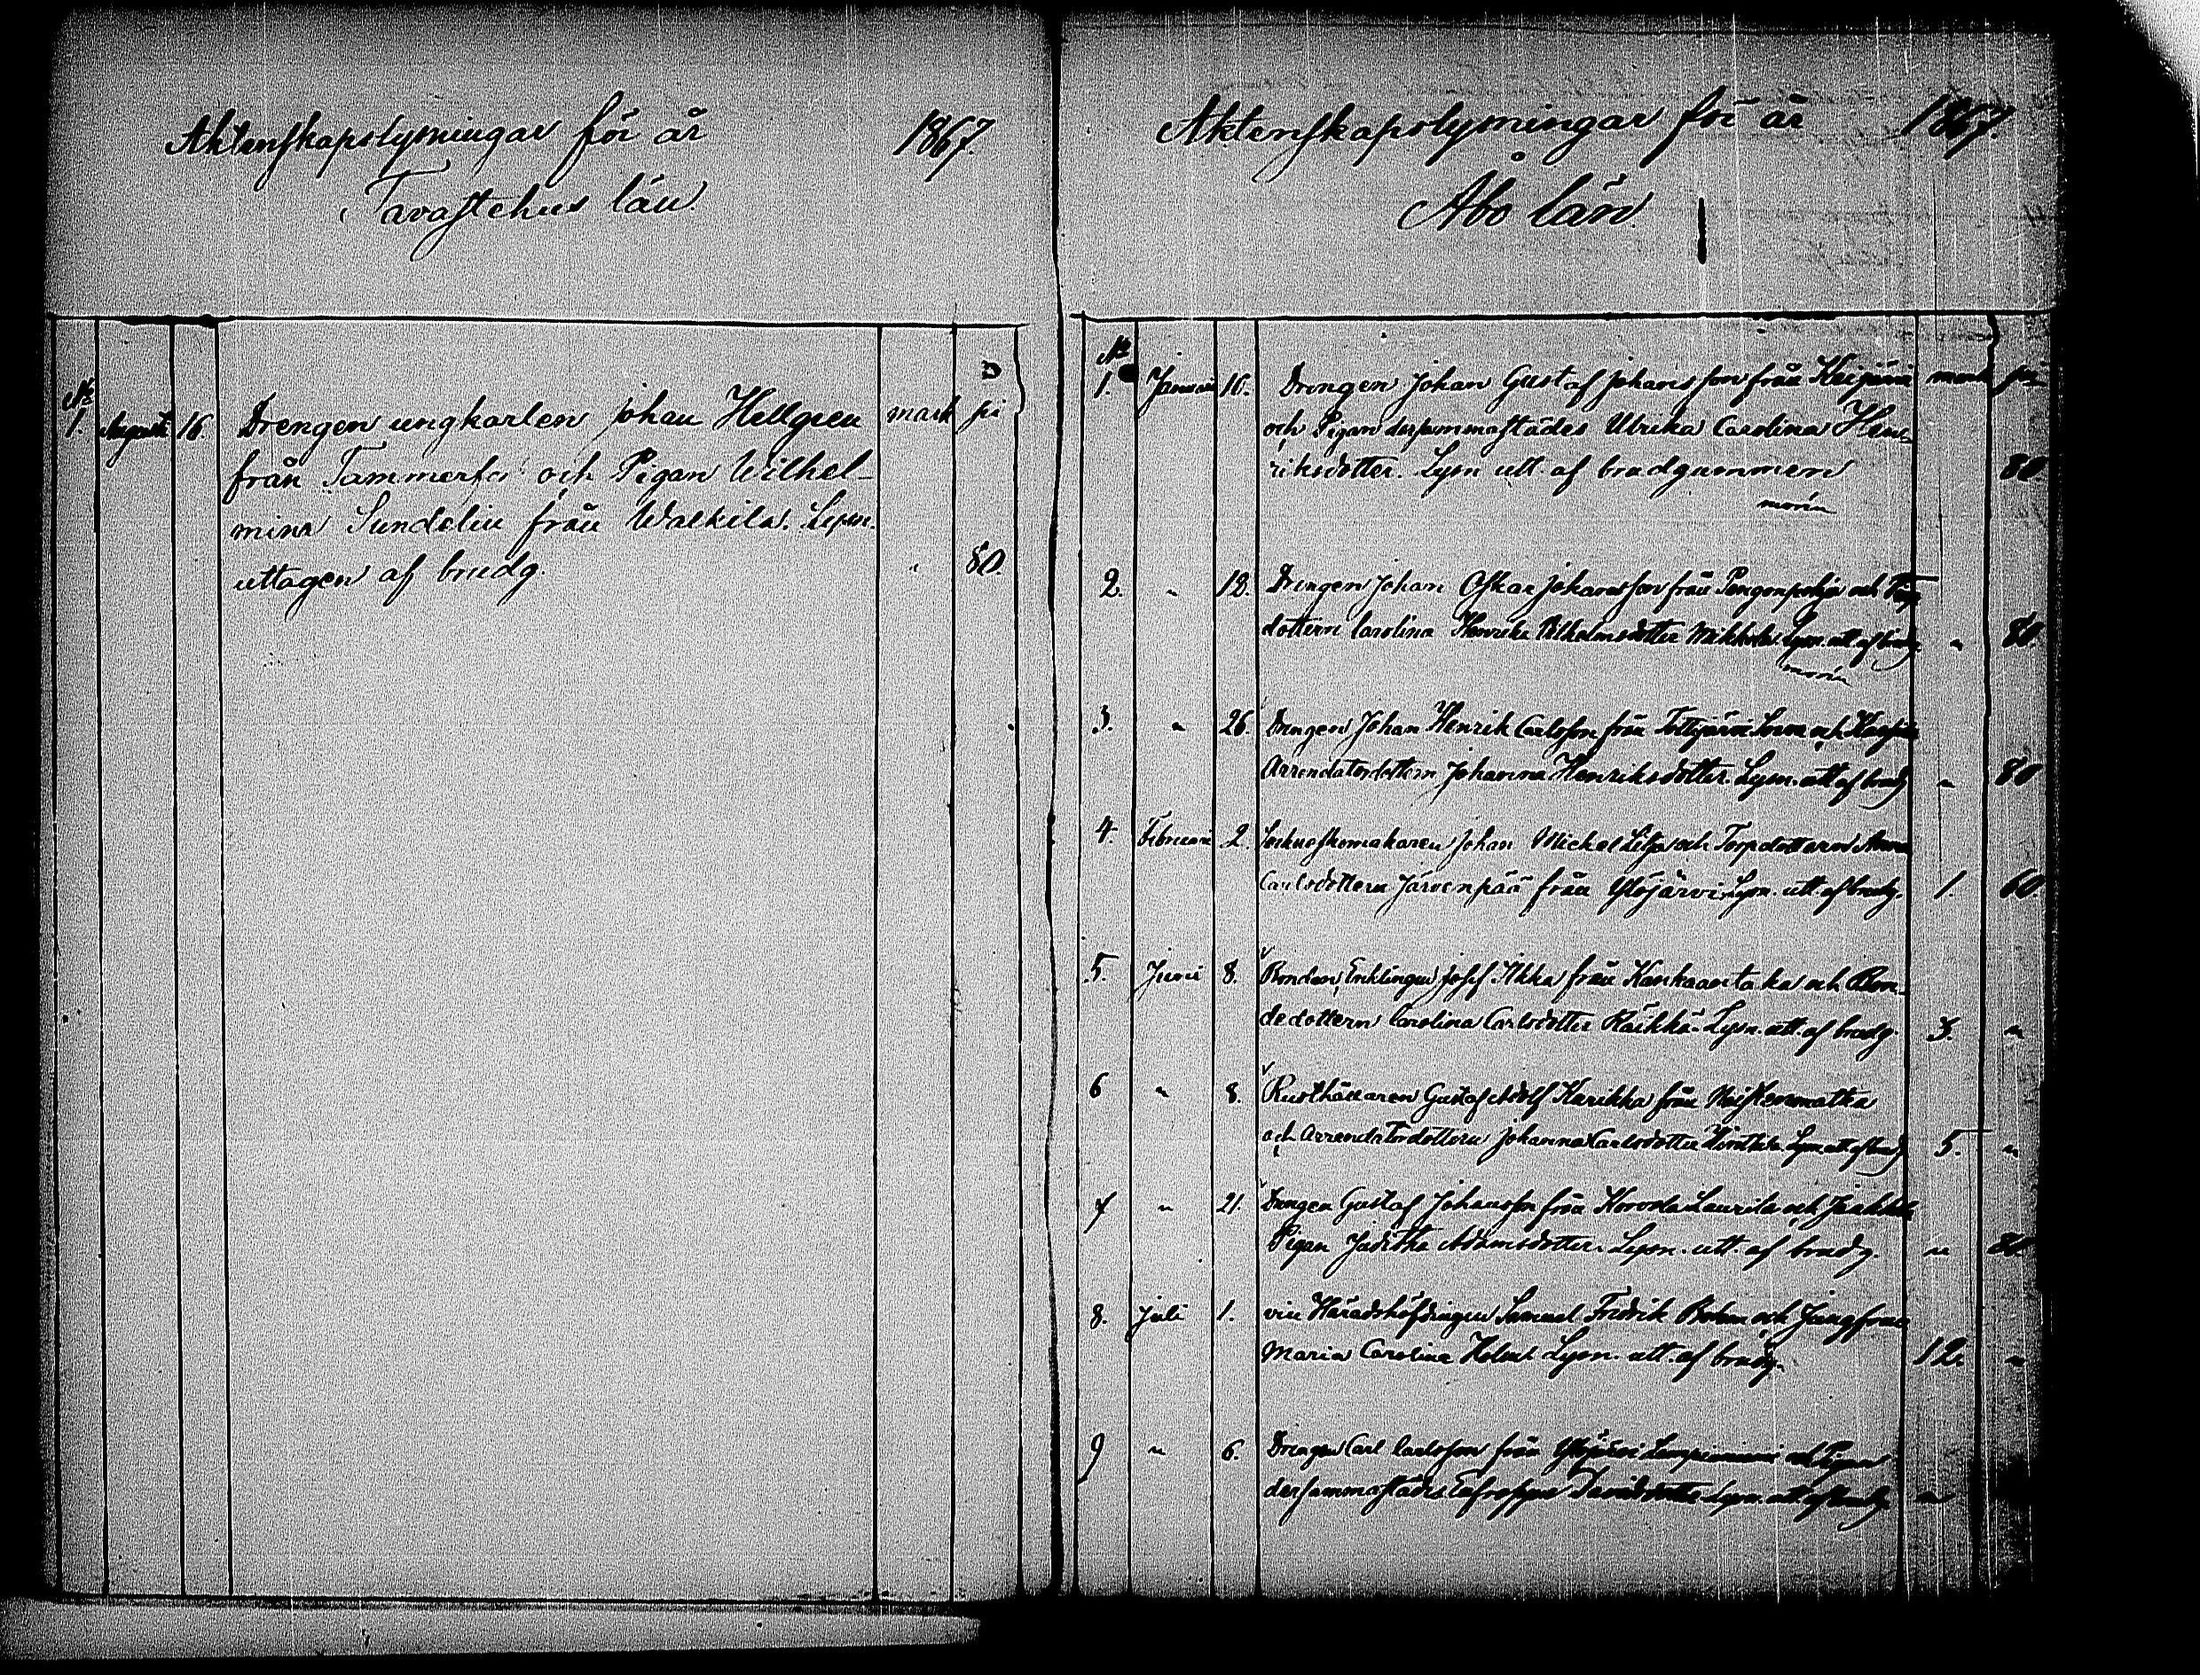 Aktenskapslysningar för år 1867.
Tavastehus län.
No mark pi
1. Augusti 16. Drengen ungkarlen Johan Hellgren
från Tammerfors och Pigan Wilhel-
mina Sundelin från Walkila. Lysn.
uttagen af brudg. " 80.
Aktenskapslysningar för år 1867.
Åbo län.
No mark pi
1. Januari 10. Drengen Johan Gustaf Johansson från
och Pigan dersammastädes Ulrika Carolina Hen-
riksdotter. Lysn utt. af brudgummen 80.
2. " 12. Drengen Johan Oskar Johansson från och
dottern Carolina Henrika Wilhelmsdotter Lysn. utt af brudg " 80.
3. " 26. Drengen Johan Henrik Carlsson från Tottijärvi och
Arrendatordottern Johanna Henriksdotter. Lysn. utt af brudg " 80
4. Februari 2. Sockneskomakaren Johan Mickel Lilja och Torpdottern Anna
Carlsdottern Järvenpää från Ylöjärvi Lysn. utt af brudg. 1. 60
5. Juni 8. Bonden, Enklingen Josef Ikka från Kankaantaka och Bon-
dedottern Carolina Carlsdotter Räikkä. Lysn. utt. af brudg. 3. "
6 " 8. Rusthållaren Gustaf Adolf från
och Arrendatordottern Johanna Carlsdotter Lysn utt af brudg 5. "
7 " 21. Drengen Gustaf Johansson från Laurila och
Pigan Juditha Adamsdotter. Lysn. utt. af brudg. " 80
8. Juli 1. vice Häradshöfdingen Samuel Fredrik och Jungfrun
Maria Carolina Lysn. utt. af brudg. 12. "
9 " 6. Drengen Carl Carlsson från Ylöjärvi och Pigan
dersammastädes Lysn. utt af brudg "